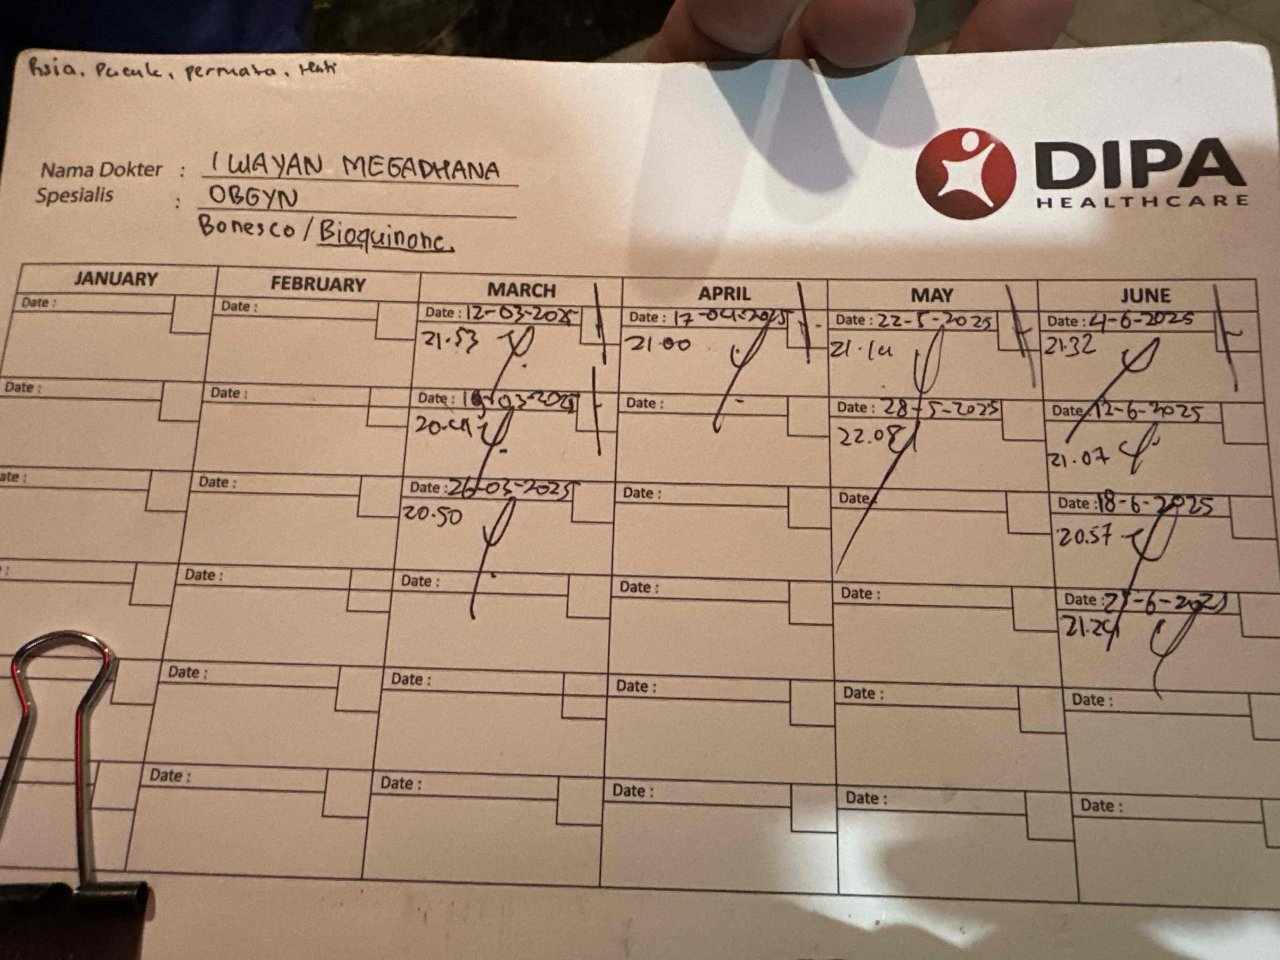 permata,
DIPA
HEALTHCARE
Nama Dokter : I WAYAN MEGADHANA
Spesialis : OBGYN
Bonesco / Bioquinone.
JANUARY FEBRUARY MARCH APRIL MAY JUNE
Date : Date : Date : 12-03-2025 Date : 17-04-2025 Date : 22-5-2025 Date : 4-6-2025
21.53 21.00 21.14 21.32
Date : Date : Date : -03-2025 Date : Date : 28-5-2025 Date : 12-6-2025
22.08 21.07
ate : Date : Date : 26-03-2025 Date : Date : Date : 18-6-2025
20.50 20.57
: Date : Date : Date : Date : Date : 25-6-2025
21.24
Date : Date : Date : Date : Date :
Date : Date : Date : Date : Date :